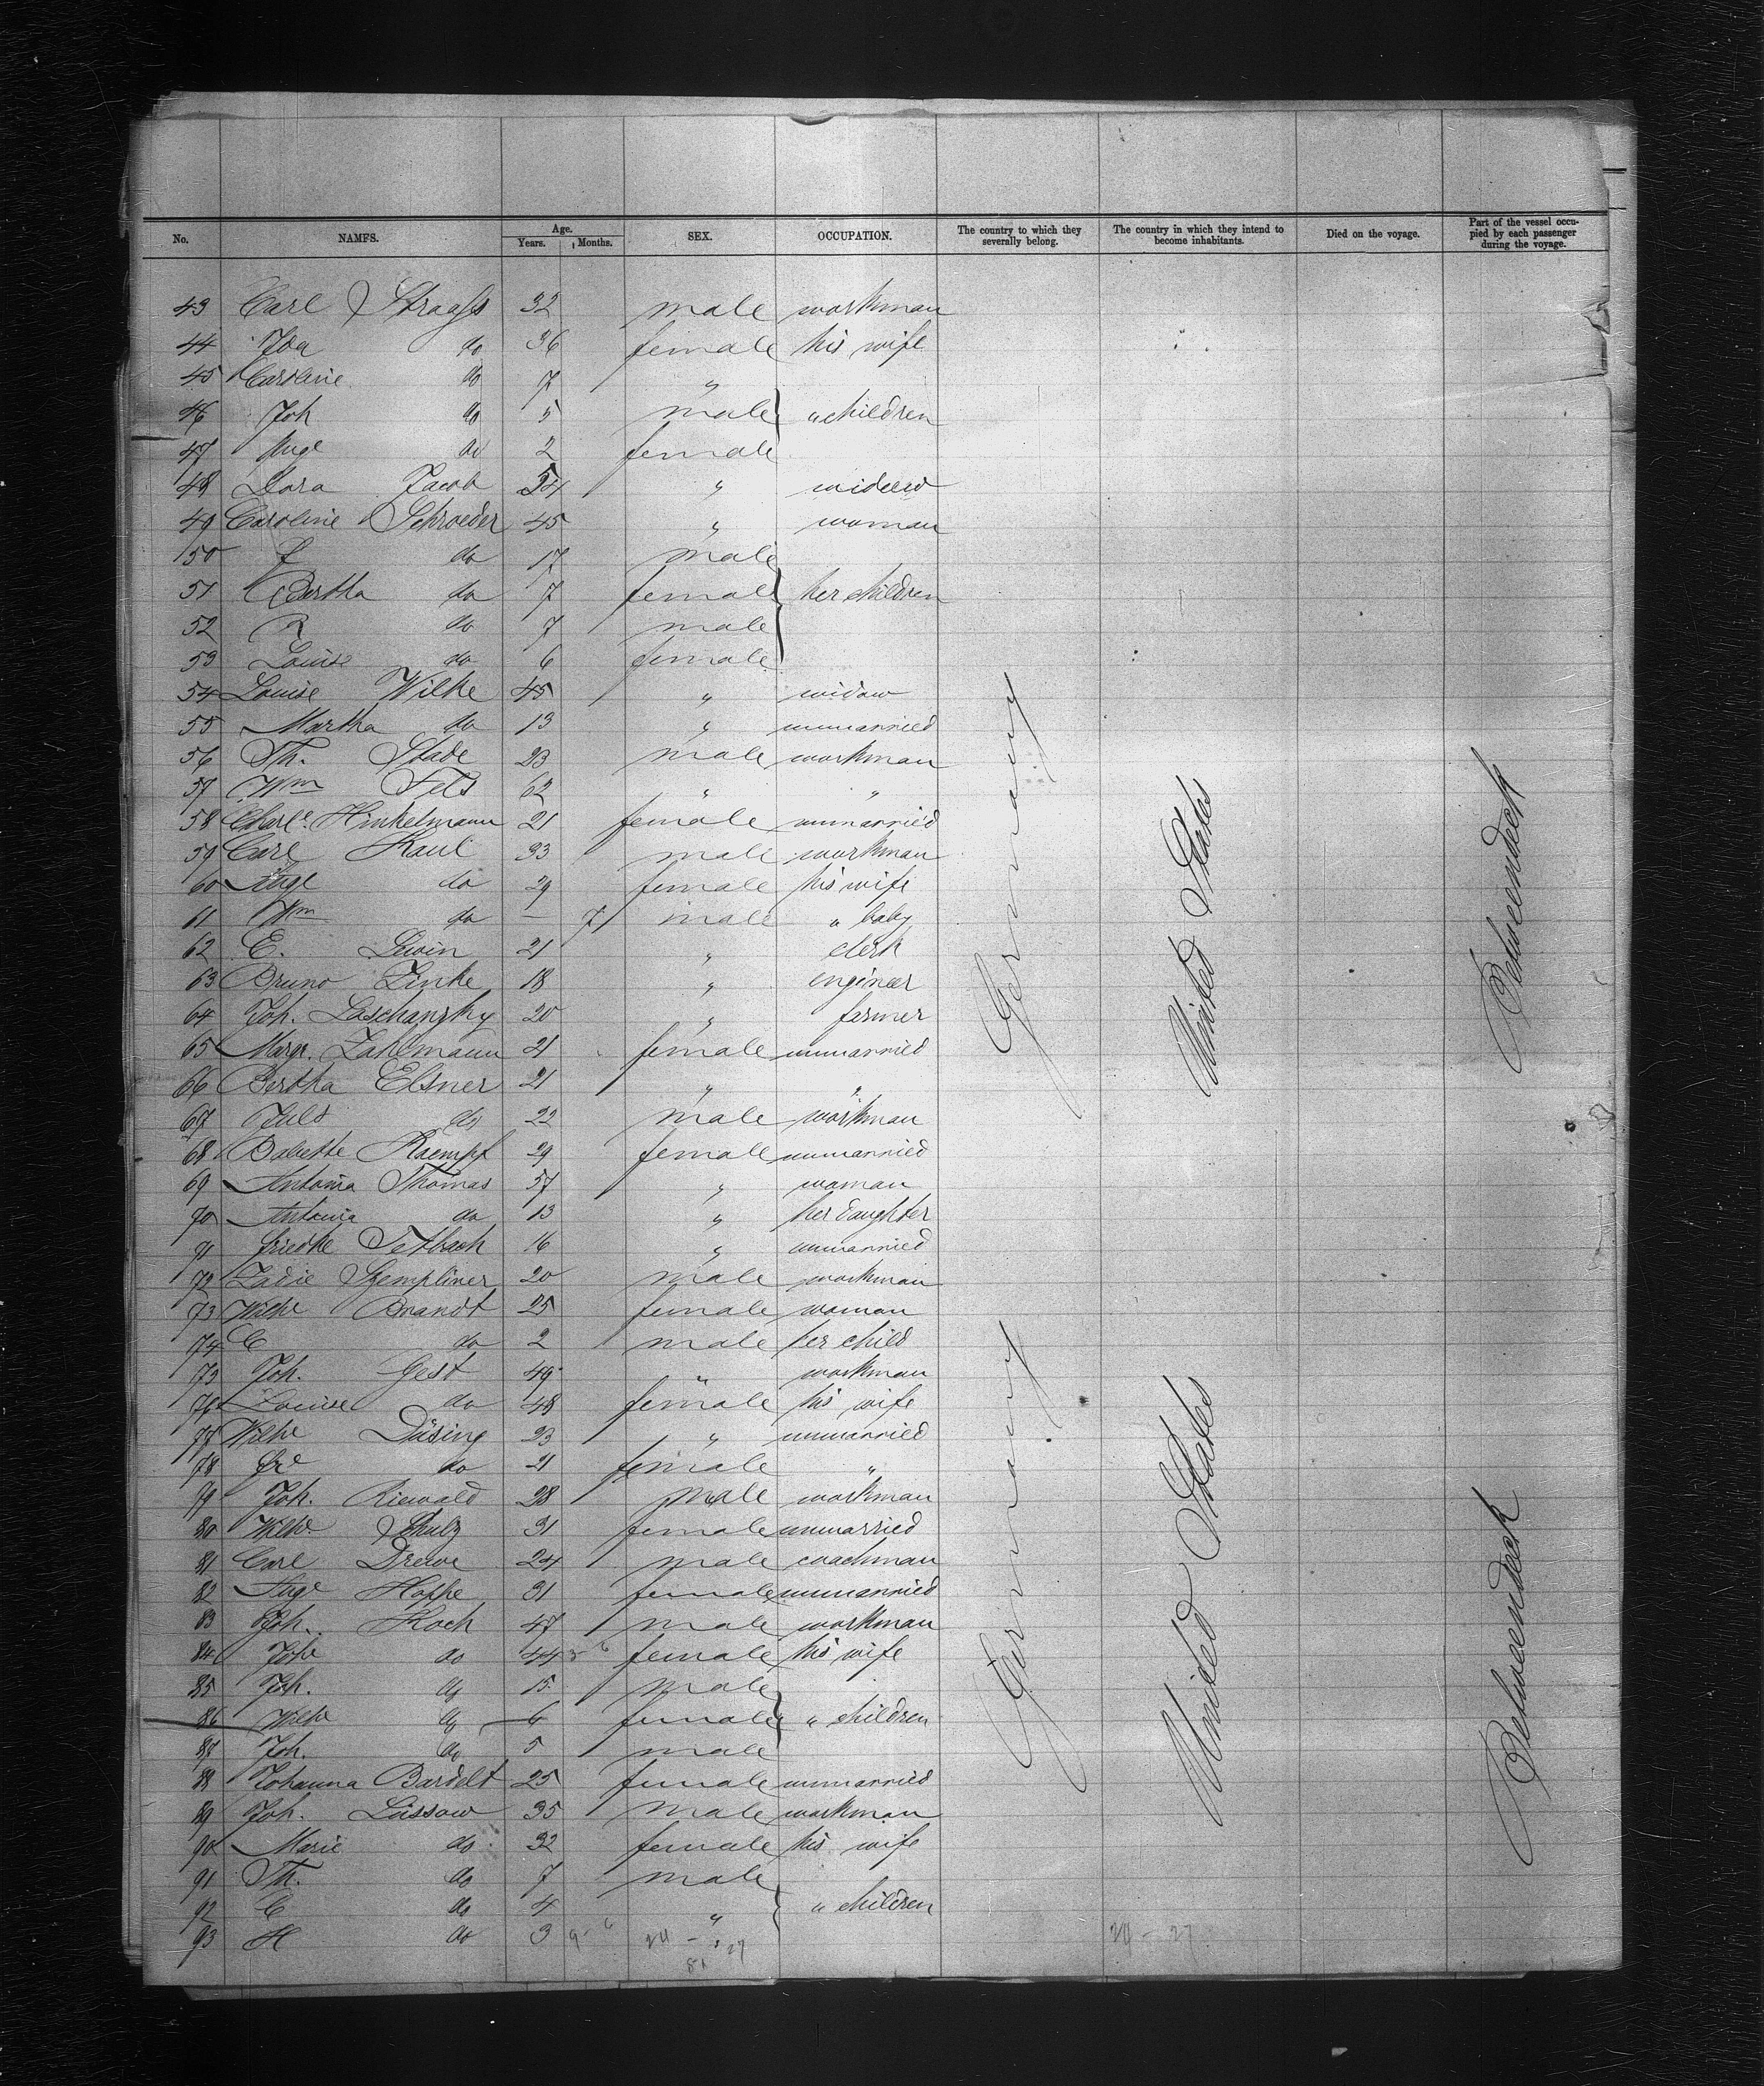 No. NAMES. Age. Years. Months. SEX. OCCUPATION. The country to which they severally belong. The country in which they intend to become inhabitants. Died on the voyage. Part of the vessel occupied by each passenger during the voyage.
43 Carl Straass 32 male workman
44 Ida do 36 female his wife
45 Caroline do 7 "
46 Joh do 5 male " children
47 Auge do 2 female
48 Dora Jacob 54 " widow
49 Caroline Schroeder 45 " woman
150 do 17 male
51 Bertha do 7 female her children
52 R do 7 male
53 Louise do 6 female
54 Louise Wilke 45 " widow
55 Martha do 13 " unmarried
56 Th. Stade 23 male workman
57 Wm Fels 62 " "
58 Charle. Hinkelmann 21 female unmarried
59 Carl Kaul 33 male workman
60 Auge do 29 female his wife
61 Wm do — 7 male " baby
62 E. Lewin 21 " clerk
63 Bruno Linke 18 " engineer
64 Joh. Laschanzky 20 " farmer
65 Margr. Zahlmann 21 female unmarried
66 Bertha Elsner 21 " "
67 Juls do 22 male workman
68 Babette Kaempf 29 female unmarried
69 Antonia Thomas 57 " woman
70 Antonia do 13 " her daughter
71 Friedke Tetbach 16 " unmarried
72 Zadie Szempliner 20 male workman
73 Wilhe Brandt 25 female woman
74 C do 2 male her child
75 Joh. Gest 49 " workman
76 Louise do 48 female his wife
77 Wilhe Düsing 23 " unmarried
78 Fre do 21 female "
79 Joh. Riewald 28 male workman
80 Wilhe Schulz 31 female unmarried
81 Carl Drewe 24 male coachman
82 Auge Hoppe 31 female unmarried
83 Joh. Koch 47 male workman
84 Johe do 44 female his wife
85 Joh. do 15 male
86 Wilhe do 6 female " children
87 Joh. do 5 male
88 Johanna Bardelt 25 female unmarried
89 Joh. Lüssow 35 male workman
90 Marie do 32 female his wife
91 Th. do 7 male
92 C do 4 " " children
93 H do 3
24 - 27
24 - 27
81
Germany United States Betweendeck
Germany United States Betweendeck